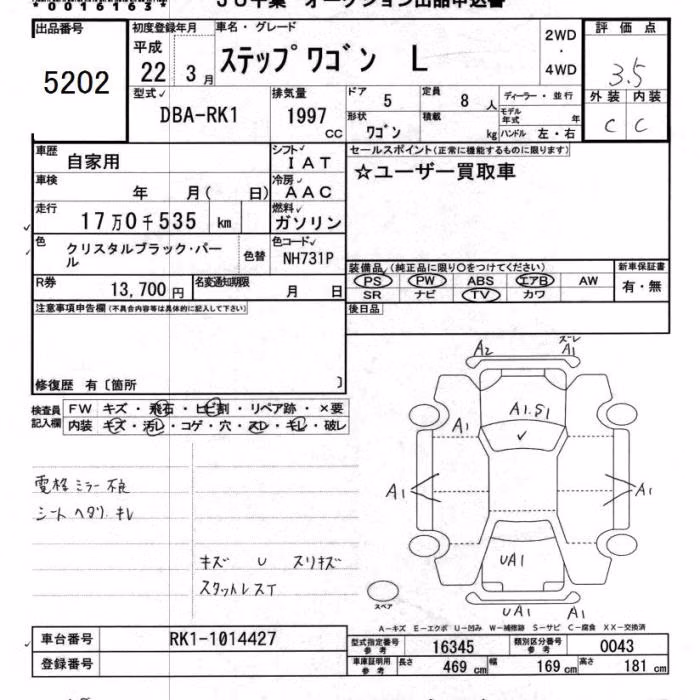 出品番号 初度登録年月 車名・グレード 評価点
5202 平成 22 3月 ステップワゴン L 2WD・4WD 3.5
型式 排気量 ドア 定員 ディーラー・並行 外装 内装
DBA-RK1 1997 CC 5 8人 モデル年式 年 C C
形状 ワゴン 積載 kg ハンドル 左・右
車歴 自家用 シフト IAT セールスポイント(正常に機能するものに限ります)
車検 年 月( 日) 冷房 AAC ☆ユーザー買取車
走行 17万0千535 km 燃料 ガソリン
色 クリスタルブラック・パール 色替 色コード NH731P
装備品(純正品に限り○をつけてください) 新車保証書
R券 13,700円 名変通知期限 月 日 PS PW ABS エアB AW 有・無
SR ナビ TV カワ
注意事項申告欄(不具合内容等は具体的に記入して下さい) 後日品
修復歴 有〔箇所 〕
検査員記入欄 FW キズ・飛石・ヒビ割・リペア跡・×要
内装 キズ・汚レ・コゲ・穴・スレ・キレ・破レ
A2 ズレ A1
A1 A1.S1
A1 A1
UA1
UA1 A1
電格ミラー不良
シートヘタリ.キレ
キズ U スリキズ
スタットレスT
スペア
A-キズ E-エクボ U-凹み W-補修跡 S-サビ C-腐食 XX-交換済
車台番号 RK1-1014427 型式指定番号参考 16345 類別区分番号参考 0043
登録番号 車庫証明用参考 長さ 469cm 幅 169cm 高さ 181cm